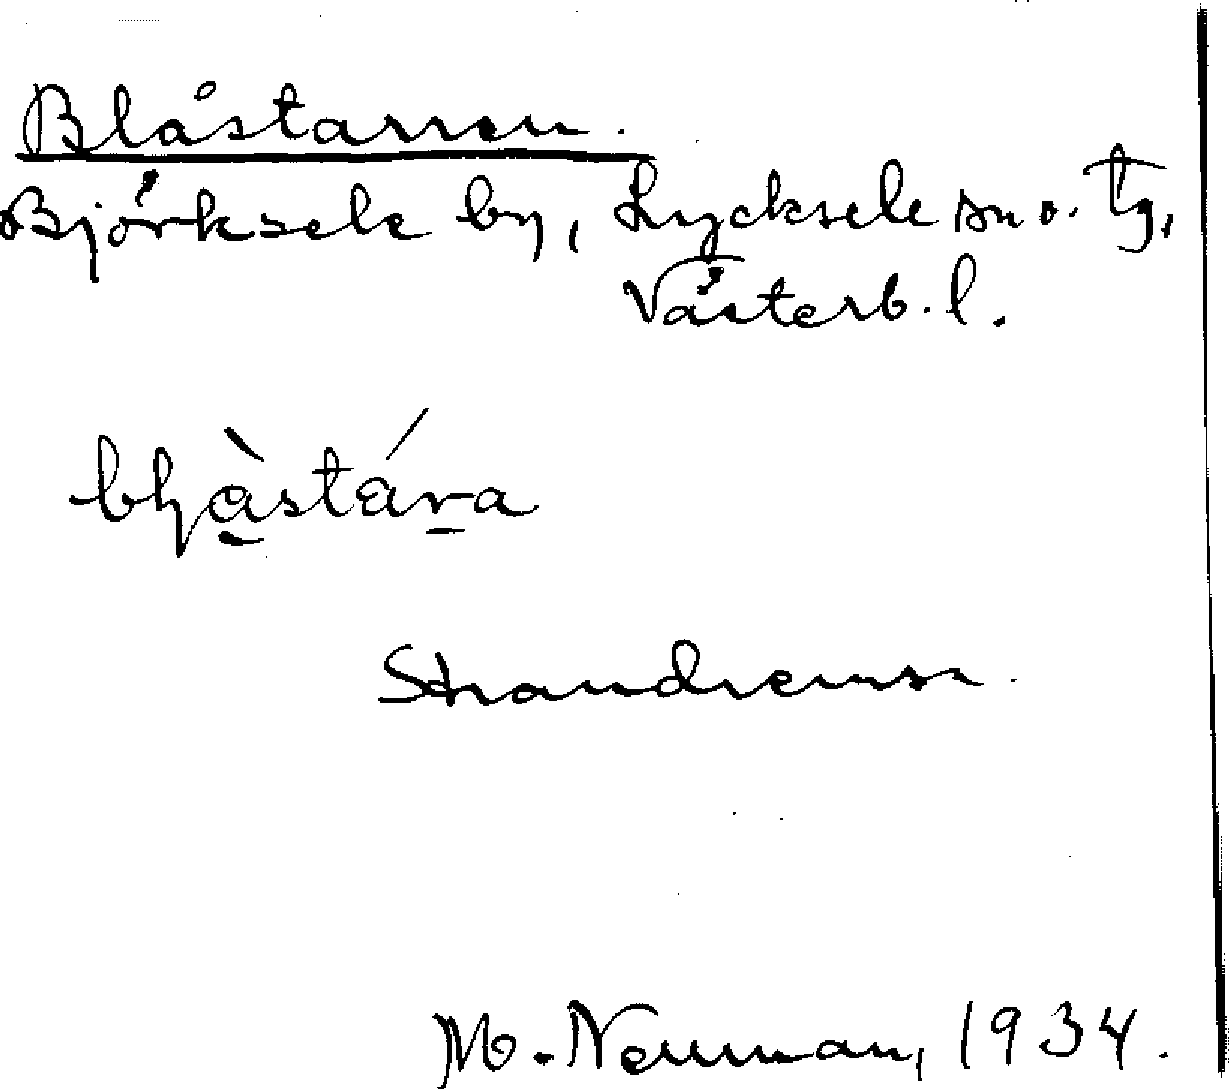 Blåstarren.
Björksele by, Lycksele sn o. tg,
Västerb. l.
Strandremsa.
M. Neuman, 1934.